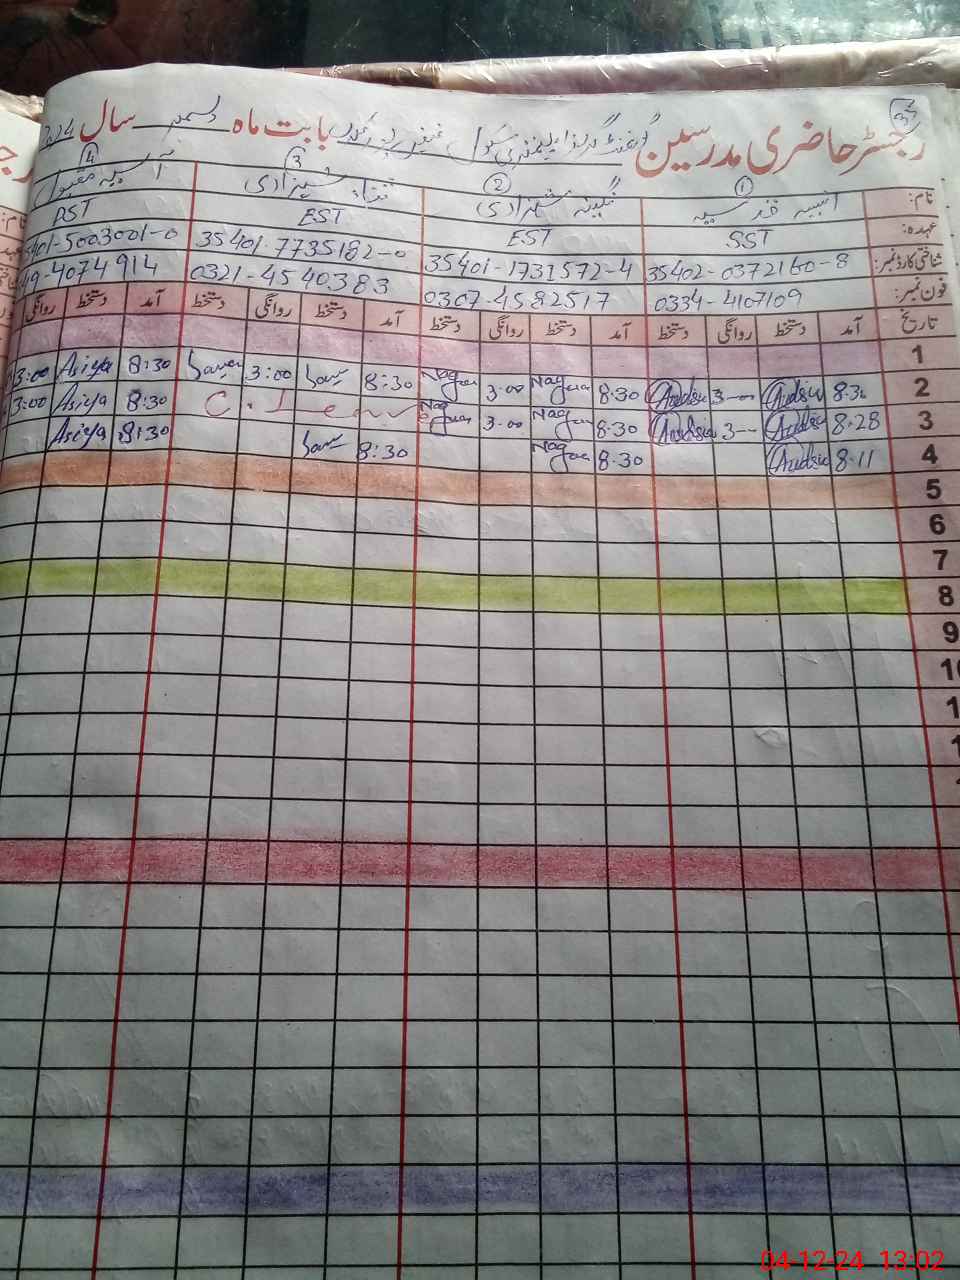 35
رجسٹر حاضری مدرسین گورنمنٹ گرلز ایلیمنٹری سکول بابت ماہ دسمبر سال 2024
نام: 1 انیسہ قدسیہ 2 نگینہ شہزادی 3 شہزادی 4 آسیہ مقبول
عہدہ: SST EST EST PST
شناختی کارڈ نمبر: 35402-0372160-8 35401-1731572-4 35401-7735182-0 5401-5003001-0
فون نمبر: 0334-4107109 0307-4582517 0321-4540383 49-4074914
تاریخ آمد دستخط روانگی دستخط آمد دستخط روانگی دستخط آمد دستخط روانگی دستخط آمد دستخط روانگی
1
2 8.30 3 8.30 3.00 8:30 3:00 8:30 Asiya 3:00
3 8.28 3 8.30 3.00 C.Leave 8:30 Asiya 3:00
4 8.11 8.30 8:30 8:30 Asiya
5
6
7
8
9
10
04-12-24 13:02